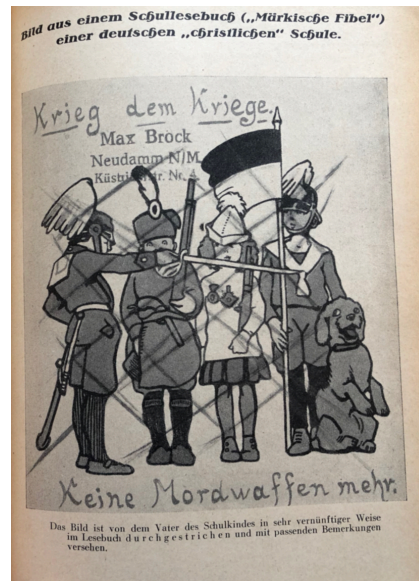 Bild aus einem Schullesebuch („Märkische Fibel“)
einer deutschen „christlichen“ Schule.
Krieg dem Kriege.
Max Brock
Neudamm N/M
Küstrinerstr. Nr. 4
Keine Mordwaffen mehr.
Das Bild ist von dem Vater des Schulkindes in sehr vernünftiger Weise
im Lesebuch durchgestrichen und mit passenden Bemerkungen
versehen.